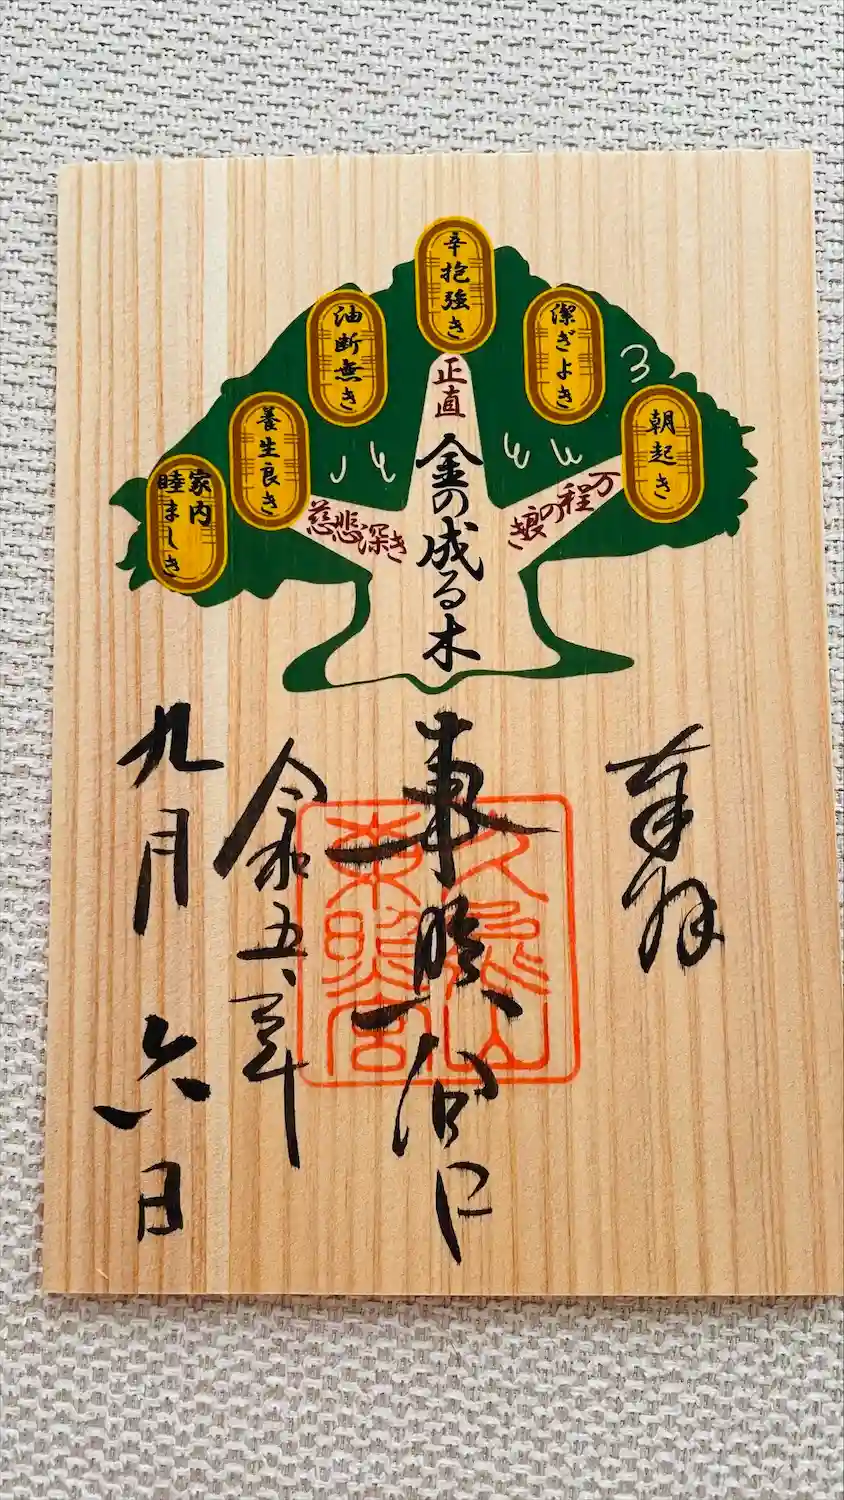 朝起き
潔ぎよき
辛抱強き
油断無き
養生良き
家内
睦ましき
万程の
正直
慈悲深き
金の成る木
奉拝
久能山
東照宮
東照宮
令和五年
九月六日